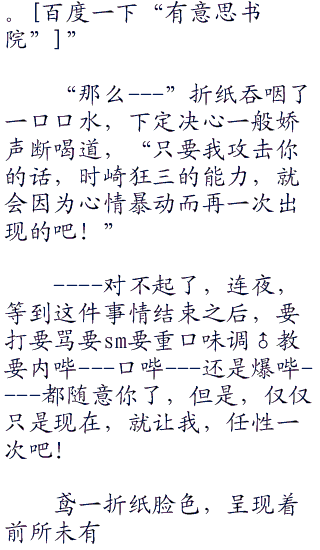 。[百度一下“有意思书
院”]”
“那么---”折纸吞咽了
一口口水，下定决心一般娇
声断喝道，“只要我攻击你
的话，时崎狂三的能力，就
会因为心情暴动而再一次出
现的吧！”
----对不起了，连夜，
等到这件事情结束之后，要
打要骂要sm要重口味调♂教
要内哔---口哔---还是爆哔-
---都随意你了，但是，仅仅
只是现在，就让我，任性一
次吧！
鸢一折纸脸色，呈现着
前所未有